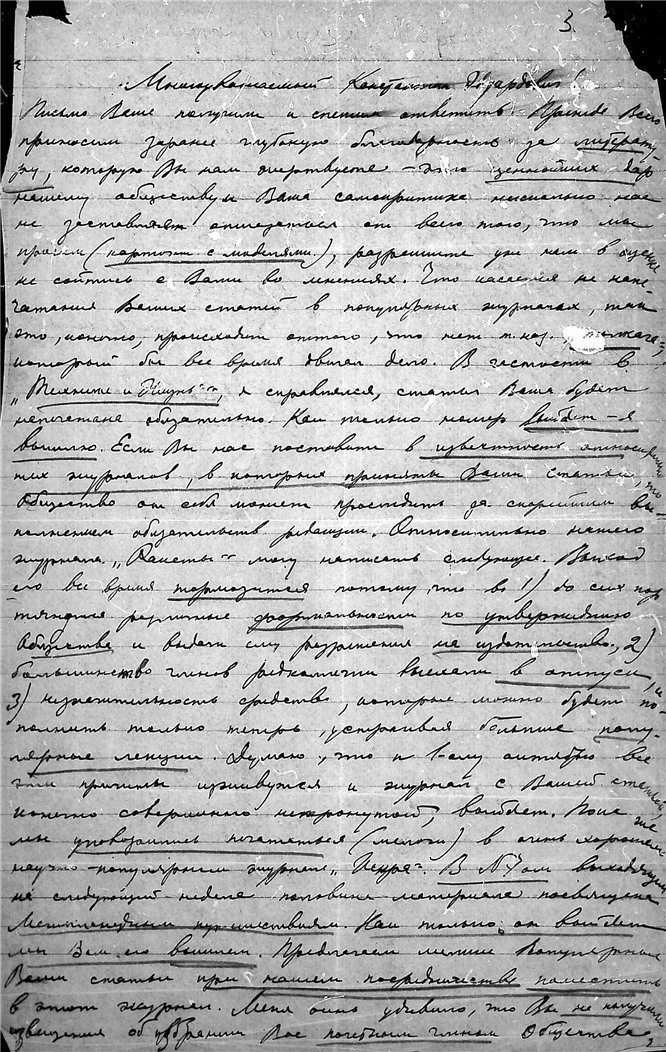 3.
Многоуважаемый Константин Эдуардович!
Письмо Ваше получили и спешим ответить. Прежде всего
приносим заранее глубокую благодарность за литерату-
ру, которую Вы нам пожертвуете – это ценнейший дар
нашему обществу и Ваша самокритика нисколько нас
не заставляет отказаться от всего того, что мы
просим (карточки с моделями), разрешите уж нам в оценке
не сойтись с Вами во мнениях. Что касается не напе-
чатания Ваших статей в популярных журналах, так
это, конечно, происходит оттого, что нет т. наз. „толкача“,
который бы все время двигал дело. В частности в
„Технике и Жизнь“, я справлялся, статья Ваша будет
напечатана обязательно. Как только номер выйдет – я
вышлю. Если Вы нас поставите в известность относитель-
но журналов, в которые приняты Ваши статьи, то
Общество от себя может проследить за скорейшим вы-
полнением обязательств редакции. Относительно нашего
журнала „Ракета“ могу написать следующее. Выход
его все время тормозится потому, что во 1) до сих пор
тянутся различные формальности по утверждению
Общества и выдачи ему разрешения на издательство, 2)
большинство членов редколлегии выехали в отпуск, и
3) незначительность средств, которые можно будет по-
полнить только теперь, устраивая большие попу-
лярные лекции. Думаю, что к 1-ому октябрю все
эти причины изживутся и журнал с Вашей статьей,
конечно совершенно нетронутой, выйдет. Пока же
мы уговорились печататься (мелочи) в очень хорошем
научно популярном журнале „Искра“. В №7ом выходящем
на следующей неделе половина материала посвящена
Межпланетным путешествиям. Как только он выйдет
мы Вам его вышлем. Предлагаем мелкие популярные
Ваши статьи при нашем посредничестве поместить
в этот журнал. Меня очень удивило, что Вы не получили
извещения об избрании Вас почетным членом Общества,